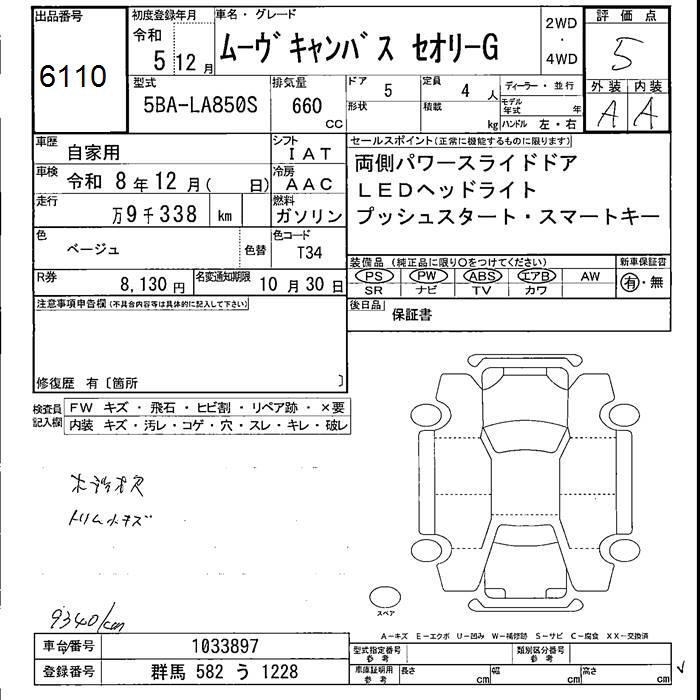 出品番号
6110
初度登録年月
令和
5 12 月
車名・グレード
ムーヴ キャンバス セオリーG
2WD
・
4WD
評価点
5
外装 内装
A A
型式
5BA-LA850S
排気量
660
CC
ドア 5
形状
定員 4 人
積載 kg
ディーラー・並行
モデル年式 年
ハンドル 左・右
車歴 自家用
シフト IAT
車検 令和 8 年 12 月( 日)
冷房 AAC
走行 万 9 千 338 km
燃料 ガソリン
色 ベージュ
色替
色コード T34
R券 8,130 円
名変通知期限 10 月 30 日
セールスポイント(正常に機能するものに限ります)
両側パワースライドドア
LEDヘッドライト
プッシュスタート・スマートキー
装備品 (純正品に限り〇をつけてください)
PS PW ABS エアB AW
SR ナビ TV カワ
新車保証書
有・無
後日品
保証書
注意事項申告欄(不具合内容等は具体的に記入して下さい)
修復歴 有〔箇所 〕
検査員記入欄
FW キズ・飛石・ヒビ割・リペア跡・×要
内装 キズ・汚レ・コゲ・穴・スレ・キレ・破レ
トリム小キズ
9340/cm
スペア
A-キズ E-エクボ U-凹み W-補修跡 S-サビ C-腐食 XX-交換済
車台番号 1033897
登録番号 群馬 582 う 1228
型式指定番号
参考
類別区分番号
参考
車庫証明用
参考
長さ cm
幅 cm
高さ cm